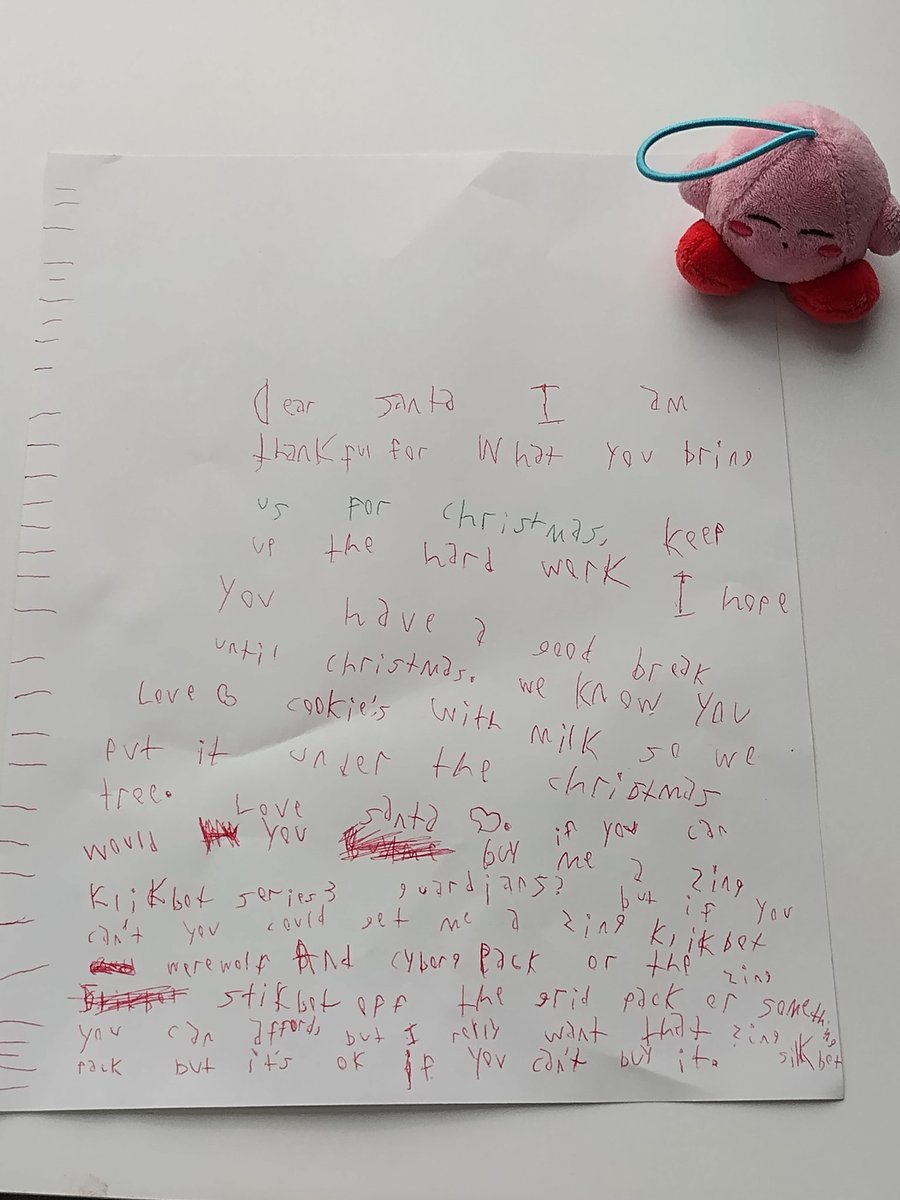 Dear santa I am
thankful for What you bring
us for christmas, keep
up the hard work I hope
you have a good break
until christmas. we know you
Love cookie's with milk so we
put it under the christmas
tree. Love santa. if you can
would you buy me a zing
Klikbot series3 guardians? but if you
can't you could get me a zing Klikbot
werewolf And cyborg pack or the zing
stikbot off the grid pack or something
you can afford, but I relly want that zing silkbot
pack but it's ok if you can't buy it.